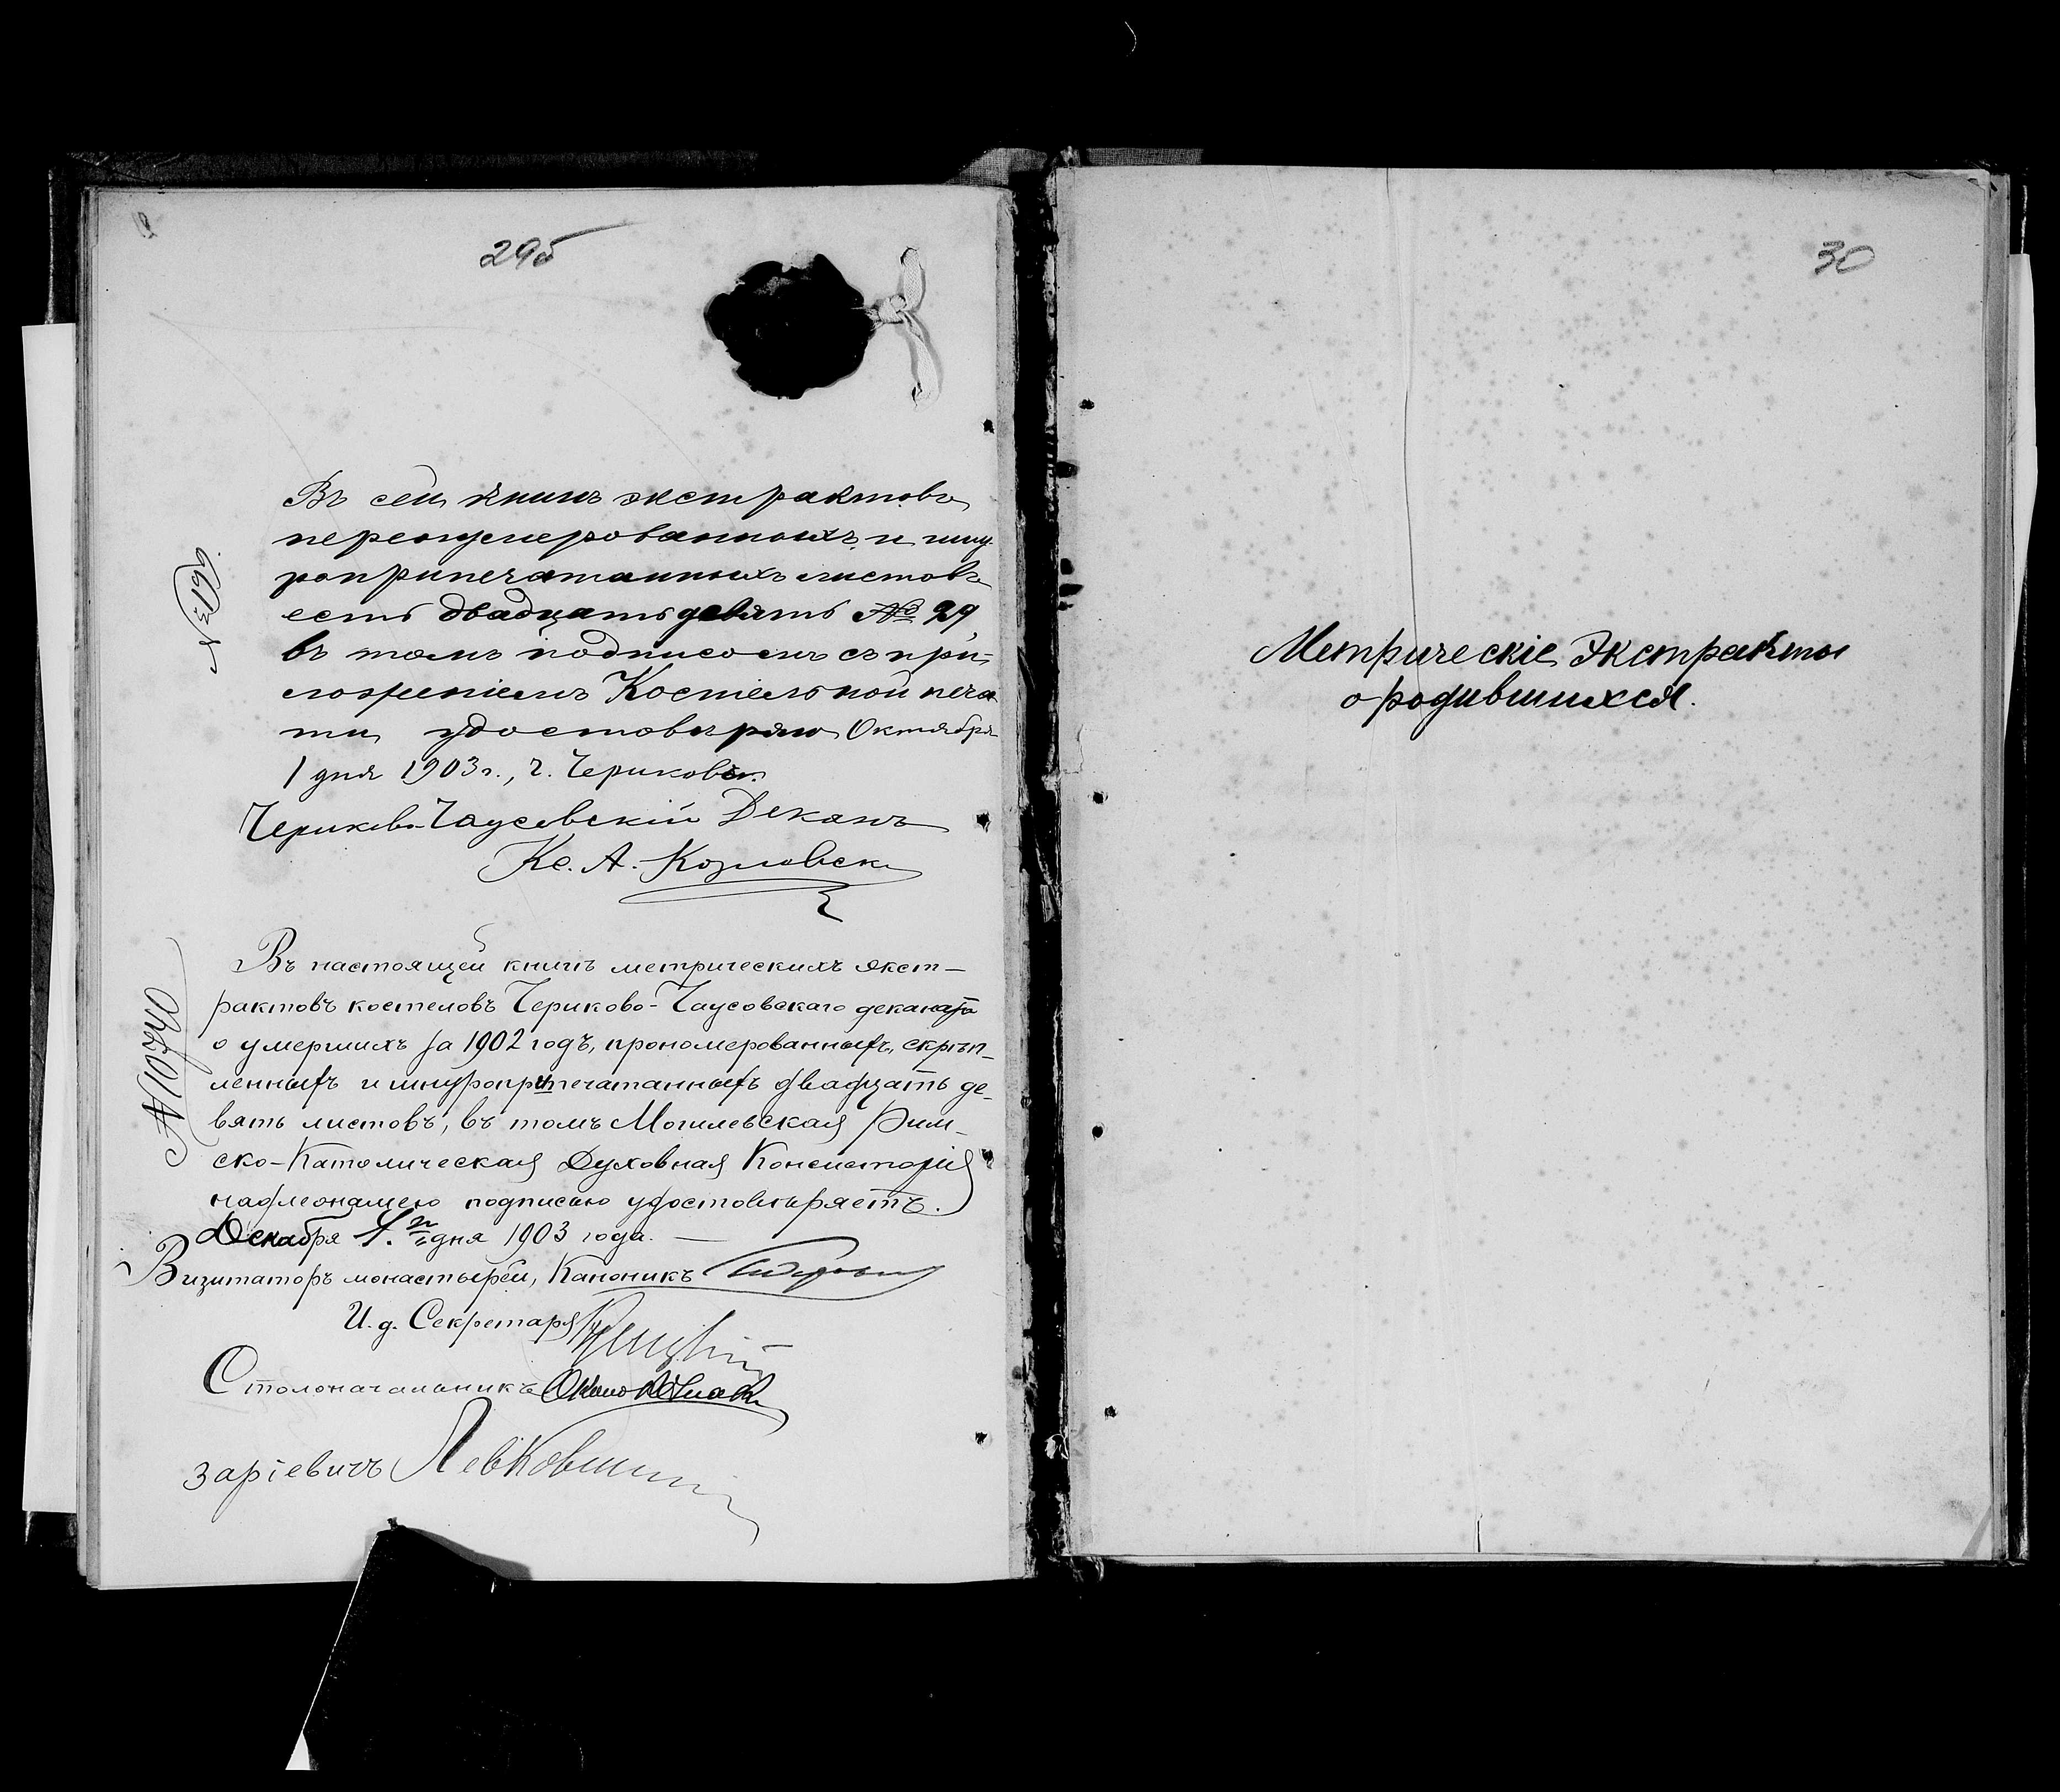 29б
№ 196.
Въ сей книгѣ экстрактовъ
перенумерованныхъ и шну-
роприпечатанныхъ листовъ
есть двадцать девять № 29
въ томъ подписомъ съ при-
ложеніемъ Костельной печа-
ти удостовѣряю Октября
1 дня 1903 г., г. Чериковъ.
Чериково-Чаусовскій Деканъ
Кс. А. Козловск
Въ настоящей книгѣ метрическихъ экст-
рактовъ костеловъ Чериково-Чаусовскаго деканата
о умершихъ за 1902 годъ, прономерованныхъ, скрѣп-
ленныхъ и шнуроприпечатанныхъ двадцать де-
вять листовъ, въ томъ Могилевская Рим-
ско-Католическая Духовная Консисторія
надлежащею подписью удостовѣряетъ.
Декабря 1. дня 1903 года.
Визитаторъ монастырей, Каноникъ
И. д. Секретаря
Столоначальникъ
№ 10740
30
Метрическіе Экстракты
о родившихся.